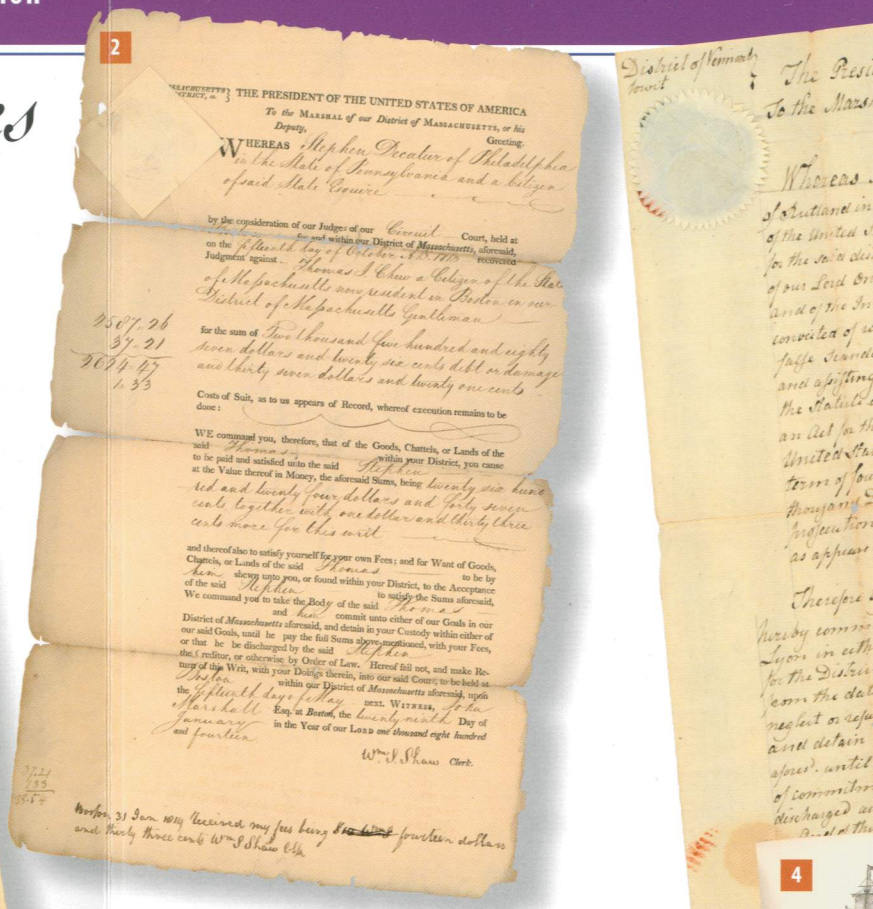 2
MASSACHUSETTS }
DISTRICT, ss. }
THE PRESIDENT OF THE UNITED STATES OF AMERICA
To the MARSHAL of our District of MASSACHUSETTS, or his
Deputy, Greeting.
WHEREAS Stephen Decatur of Philadelphia
in the State of Pennsylvania and a Citizen
of said State Esquire
by the consideration of our Judges of our Circuit Court, held at
Boston for and within our District of Massachusetts, aforesaid,
on the fifteenth day of October recovered
Judgment against Thomas I Chew a Citizen of the State
of Massachusetts now resident in Boston in our
District of Massachusetts Gentleman
2587.26
37.21
2624.47
1.33
for the sum of Two thousand five hundred and eighty
seven dollars and twenty six cents debt or damage
and thirty seven dollars and twenty one cents
Costs of Suit, as to us appears of Record, whereof execution remains to be
done :
WE command you, therefore, that of the Goods, Chattels, or Lands of the
said Thomas within your District, you cause
to be paid and satisfied unto the said Stephen
at the Value thereof in Money, the aforesaid Sums, being twenty six hund
red and twenty four dollars and forty seven
cents, together with one dollar and thirty three
cents more for this writ
and thereof also to satisfy yourself for your own Fees ; and for Want of Goods,
Chattels, or Lands of the said Thomas to be by
him shewn unto you, or found within your District, to the Acceptance
of the said Stephen to satisfy the Sums aforesaid,
We command you to take the Body of the said Thomas
and him commit unto either of our Goals in our
District of Massachusetts aforesaid, and detain in your Custody within either of
our said Goals, until he pay the full Sums above-mentioned, with your Fees,
or that he be discharged by the said Stephen
the Creditor, or otherwise by Order of Law. Hereof fail not, and make Re-
turn of this Writ, with your Doings therein, into our said Court, to be held at
Boston within our District of Massachusetts aforesaid, upon
the fifteenth day of May next. WITNESS, John
Marshall Esq. at Boston, the twenty ninth Day of
January in the Year of our LORD one thousand eight hundred
and fourteen
Wm. S. Shaw Clerk.
37.21
1.33
Boston 31 Jan 1814 Received my fees being fourteen dollars
and thirty three cents Wm S Shaw Clk
District of Vermont
towit
The Presi
To the Mars
Whereas
of Rutland in
of the United S
for the said dis
of our Lord On
and of the In
convicted of
false Scanda
and assisting
the Statute
an Act for th
United Sta
term of fou
thousand
prosecution
as appears
Therefore
hereby comm
Lyon in eith
for the Distri
from the dat
neglect or refu
and detain
afores. until
of commitm
discharged
4